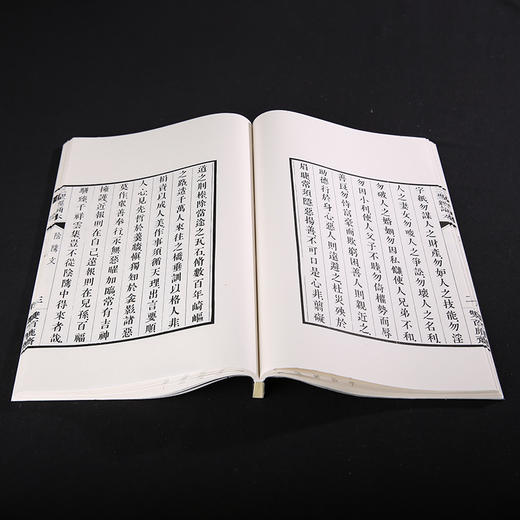 字紙勿謀人之財產勿妒人之技能勿淫
人之妻女勿唆人之爭訟勿壞人之名利
勿破人之婚姻勿因私讎使人兄弟不和
勿因小利使人父子不睦勿倚權勢而辱
善良勿恃富豪而欺窮困善人則親近之
助德行於身心惡人則遠避之杜災殃於
眉睫常須隱惡揚善不可口是心非翦礙
道之荊榛除當途之瓦石修數百年崎嶇
之路造千萬人來往之橋垂訓以格人非
捐資以成人美作事須循天理出言要順
人心見先哲於羹牆慎獨知於衾影諸惡
莫作眾善奉行永無惡曜加臨常有吉神
擁護近報則在自己遠報則在兒孫百福
駢臻千祥雲集豈不從陰騭中得來者哉
陰騭文
三